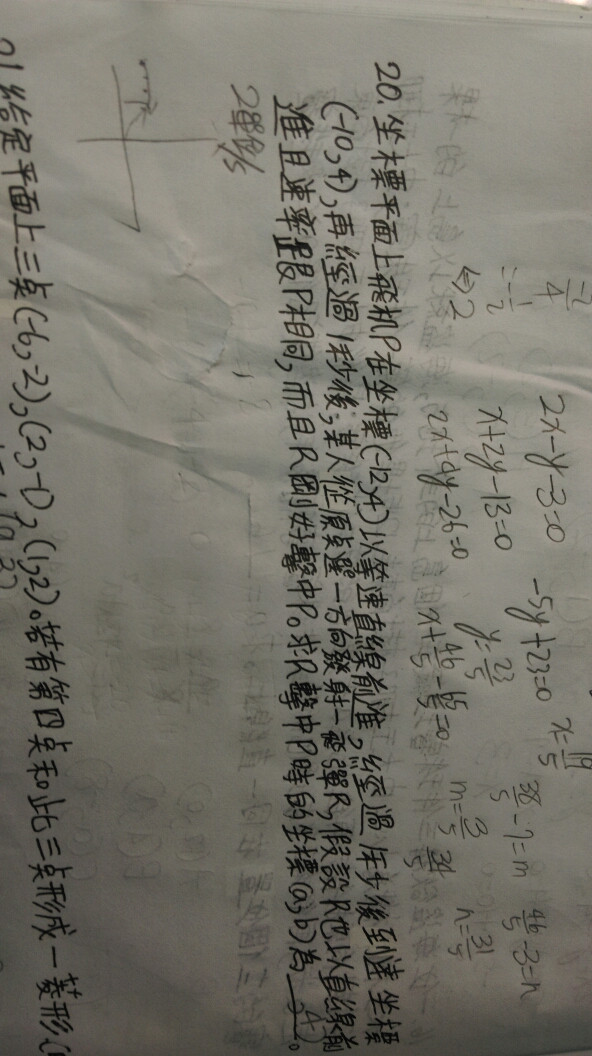 2x-y-3=0
x+2y-13=0
2x+4y-26=0
-5y+23=0
y=23/5
x+46/5-65/5=0
x=19/5
38/5-7=m
m=3/5
46/5-3=n
n=31/5
-2/4
=-1/2
⇔2
20. 坐標平面上飛机P在坐標(-12,4)以等速直線前進,經過1秒後到達坐標
(-10,4),再經過1秒後,某人從原点選一方向發射一飛彈R,假設R也以直線前
進且速率跟P相同,而且R剛好擊中P。求R擊中P時的坐標(a,b)為
21 給定平面上三点(-6,-2),(2,-1),(1,2)。若有第四点和此三点形成一菱形